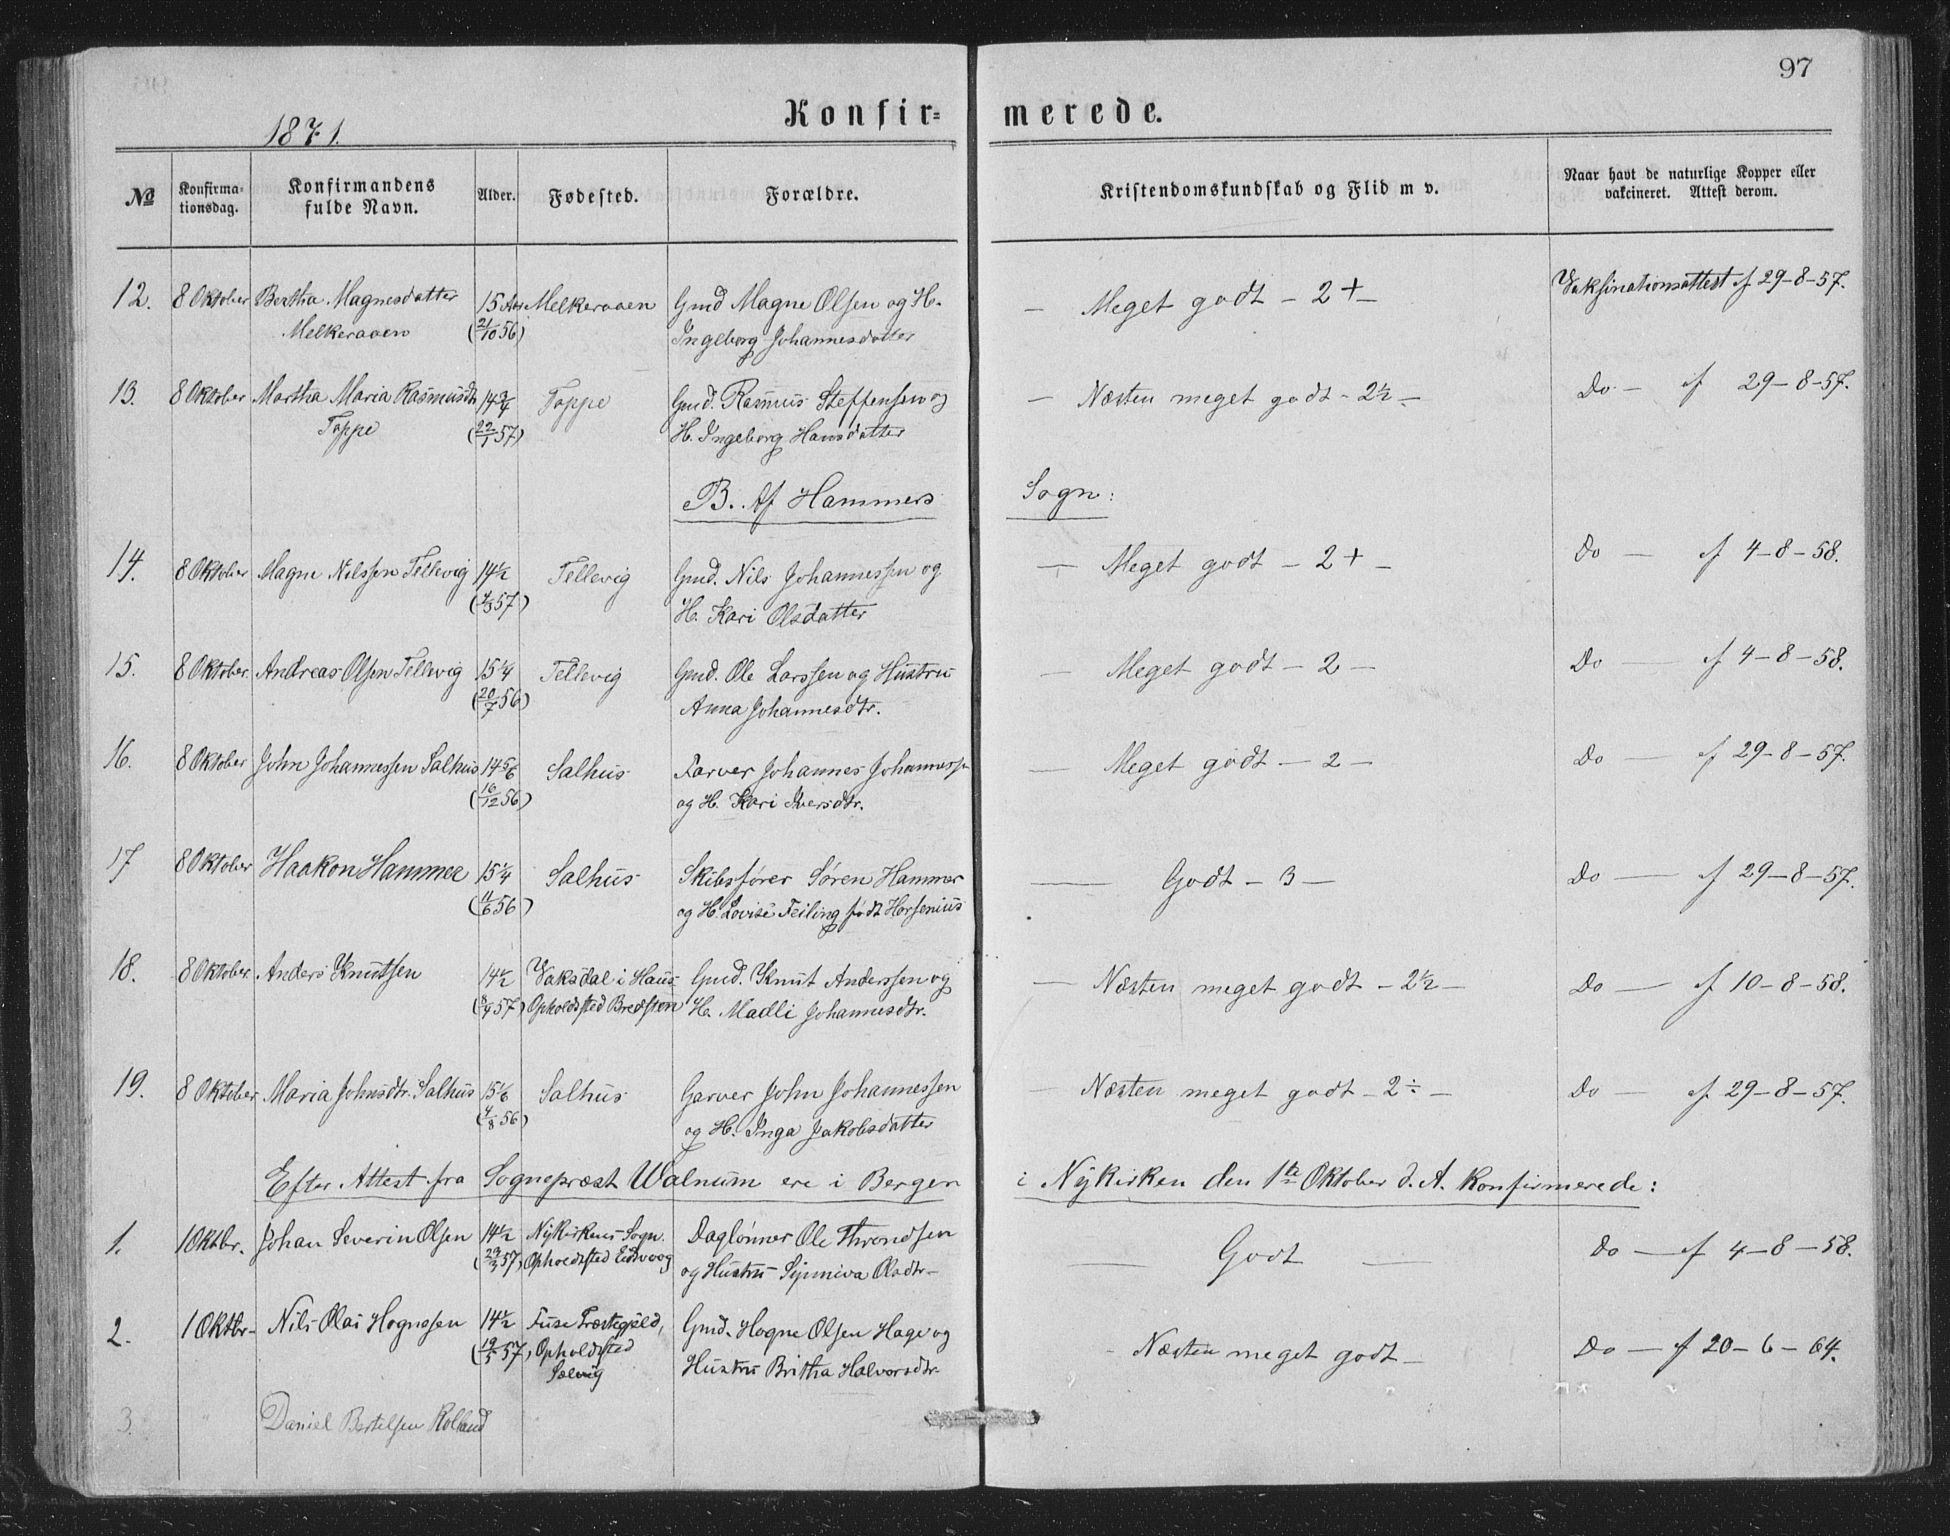 97
Konfir= merede.
1871.
No
Konfirma=
tionsdag.
Konfirmandens
fulde Navn.
Alder.
Fødested.
Forældre.
Kristendomskundskab og Flid m v.
Naar havt de naturlige Kopper eller
vakcineret. Attest derom.
12. 8 Oktober Bertha Magnesdatter 15 Aar Melkeraaen Gmd Magne Olsen og H. — Meget godt — 2+ — Vaksinationsattest af 29-8-57.
Melkeraaen (21/10 56) Ingeborg Johannesdatter
13. 8 Oktober Martha Maria Rasmusdtr 14 3/4 Toppe Gmd. Rasmus Steffensen og — Næsten meget godt - 2½ — Do — af 29-8-57.
Toppe (22/1 57) H. Ingeborg Hansdatter
B. Af Hammers Sogn:
14. 8 Oktober Magne Nilssen Tellevig 14½ Tellevig Gmd. Nils Johannessen og — Meget godt — 2+ — Do — af 4-8-58.
(4/3 57) H. Kari Olsdatter
15. 8 Oktober. Andreas Olsen Tellevig 15¼ Tellevig Gmd. Ole Larssen og Hustru — Meget godt — 2 — Do — af 4-8-58.
(20/7 56) Anna Johannesdtr.
16. 8 Oktober John Johannessen Salhus 14 5/6 Salhus Farver Johannes Johannessen — Meget godt — 2 — Do — af 29-8-57.
(16/12 56) og H. Kari Iversdtr.
17 8 Oktober Haakon Hammer 15¼ Salhus Skibsfører Søren Hammer — Godt — 3 — Do — af 29-8-57.
(11/6 56) og H. Lovise Feiling født Horsenius
18. 8 Oktober. Anders Knutsen 14½ Vaksdal i Haus Gmd. Knut Anderssen og — Næsten meget godt — 2½ — Do — af 10-8-58.
(8/4 57) Opholdssted Bredsteen H. Madli Johannesdtr.
19. 8 Oktober Maria Johnsdtr. Salhus 15 1/6 Salhus Garver John Johannessen — Næsten meget godt — 2÷ — Do — af 29-8-57.
(4/8 56) og H. Inga Jakobsdatter
Efter Attest fra Sognepræst Walnum ere i Bergen i Nykirken den 1te Oktober d. A. konfirmerede:
1. 1 Oktbr. Johan Severin Olsen 14½ Nykirkens Sogn. Daglønner Ole Throndsen — Godt — Do — af 4-8-58.
(29/3 57) Opholdssted Eidsvaag og Hustru Synniva Olsdtr—
2. 1 Oktbr— Nils Olai Hognesen 14½ Fuse Præstegjeld, Gmd. Hogne Olsen Hage og — Næsten meget godt — Do — af 20-6-64.
(19/5 57), Opholdssted Hustru Britha Halvorsdtr
Sælevig
3. " Daniel Bertelsen Rolland